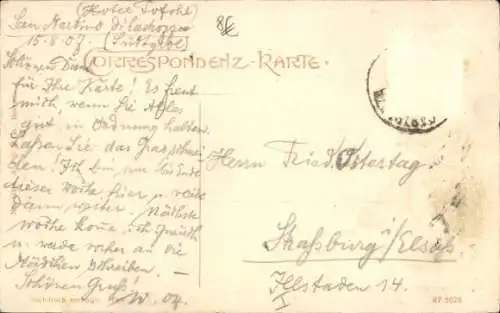 (Hotel Sofohl)
San Martino di Castrozza
15.8.07. (Südtyrol)
CORRESPONDENZ-KARTE.
Schönen Dank
für Ihre Karte! Es freut
mich, wenn Sie Alles
gut in Ordnung halten,
lassen Sie das Gras
Ich bin nur bis Ende
dieser Woche hier u. reise
dann weiter. Nächste
Woche komme ich
u. werde vorher an die
Mädchen schreiben. –
Schönen Gruß!
Herrn Fried. Ostertag.
Straßburg i/Elsaß.
Illstaden 14.
I
87 5026